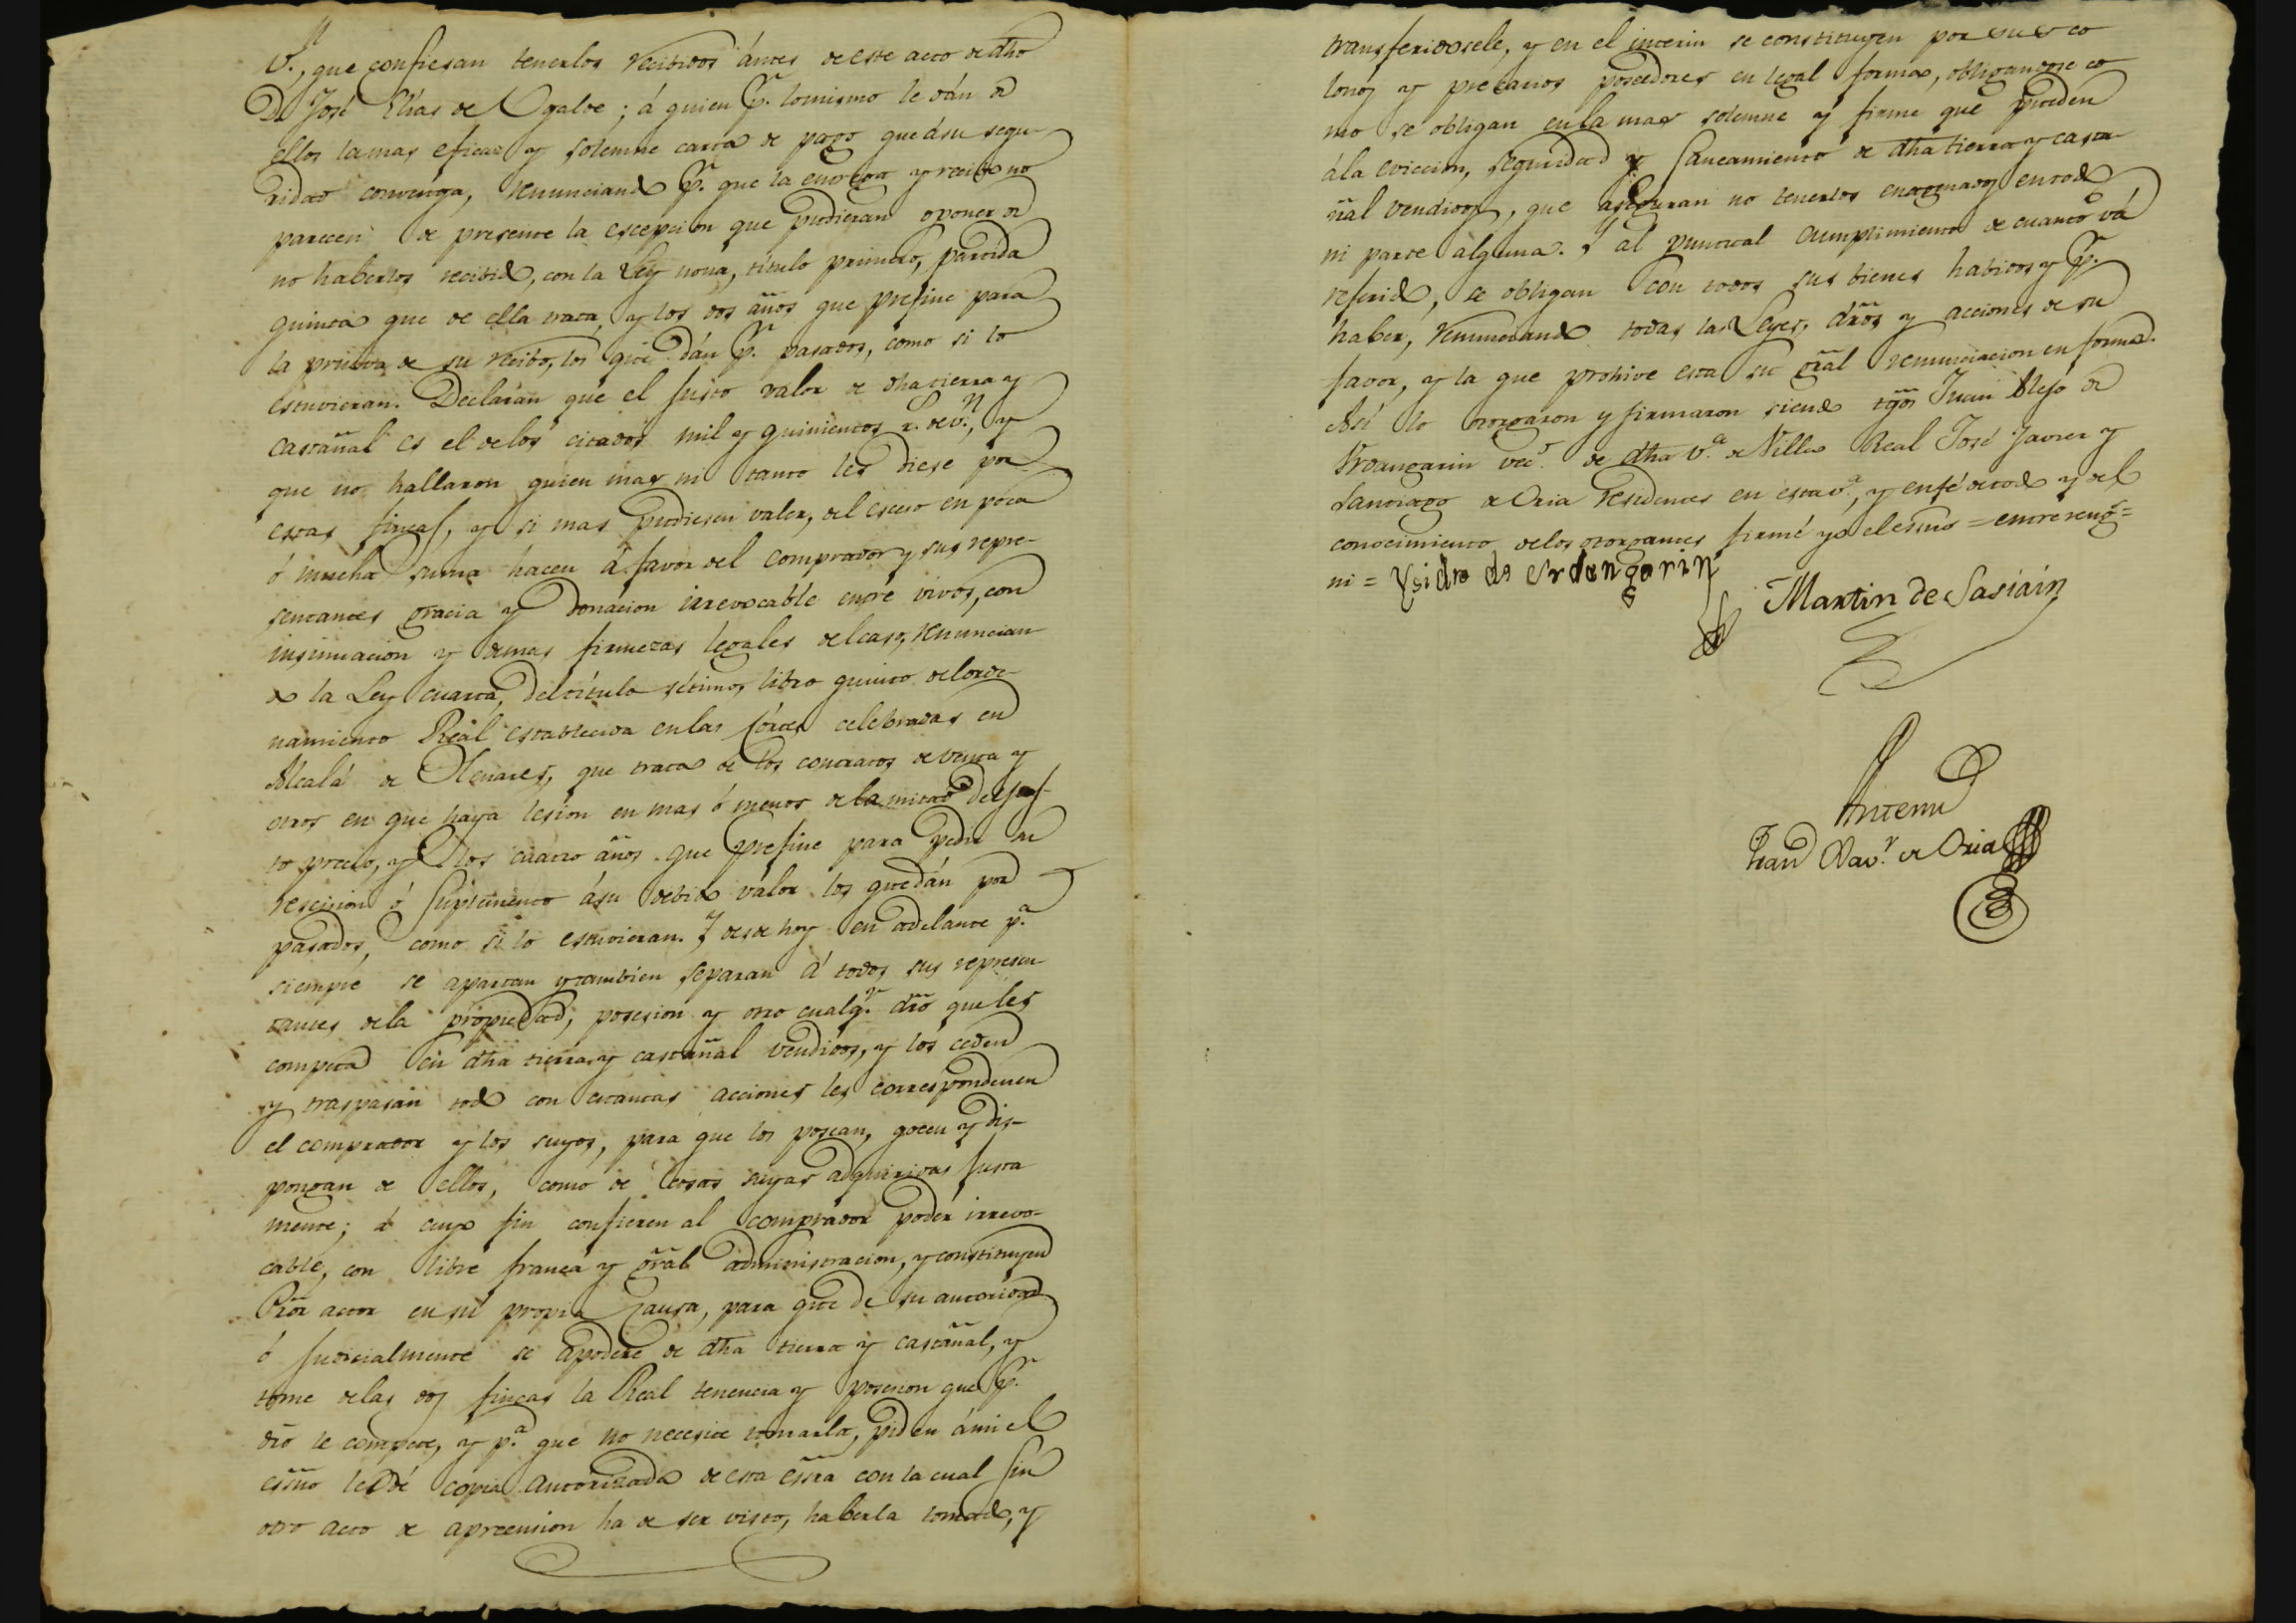 V.n, que confiesan tenerlos recibidos ántes de este acto de dho
Dn José Elías de Ugalde; á quien p.r lo mismo le dán de
ellos la mas eficaz y solemne carta de pago que á su segu-
ridad convenga, renunciando p.r que la entrega y recibo no
parecen de presente la escepcion que pudieran oponer de
no haberlos recibido, con la Ley nona, título primero, partida
quinta que de ella trata, y los dos años que prefine para
la prueba de su recibo, los que dán p.r pasados, como si lo
estuvieran. Declaran que el justo valor de dha tierra y
castañal es el de los citados mil y quinientos r.s de v.n, y
que no hallaron quien mas ni tanto les diese por
estas fincas, y si mas pudiesen valer, del esceso en poca
ó mucha suma hacen á favor del comprador y sus repre-
sentantes gracia y donacion irrevocable entre vivos, con
insinuacion y demas firmezas legales del caso, renuncian
do la Ley cuarta, del título sétimo, libro quinto del orde-
namiento Real establecida en las Córtes celebradas en
Alcalá de Henares, que trata de los contratos de venta y
otros en que haya lesion en mas ó menos de la mitad del jus-
to precio, y los cuatro años que prefine para pedir su
rescision ó suplemento á su debido valor los que dán por
pasados, como si lo estuvieran. Y desde hoy en adelante p.a
siempre se apartan y tambien separan á todos sus represen
tantes de la propiedad, posesion y otro cualq.r dro que les
competa en dha tierra y castañal vendidos, y los ceden
y traspasan todo con cuantas acciones les corresponden en
el comprador y los suyos, para que los posean, gocen y dis-
pongan de ellos, como de cosas suyas adquiridas justa
mente; á cuyo fin confieren al comprador poder irrevo-
cable, con libre franca y gral administracion, y constituyen
Pror actor en su propia Causa, para que de su autoridad
ó judicialmente se apodere de dha tierra y castañal, y
tome de las dos fincas la Real tenencia y posesion que p.r
dro le compete, y p.a que no necesite tomarla, piden á mi el
essno le dé copia autorizada de esta essra con la cual sin
otro acto de aprension ha de ser visto, haberla tomado, y
transferidosele, y en el interin se constituyen por sus co
lonos y precarios poseedores en legal forma, obligandose co
mo se obligan en la mas solemne y firme que pueden
á la eviccion, seguridad y saneamiento de dha tierra y casta-
ñal vendidos, que aseguran no tenerlos enagenados en todo
ni parte alguna. Y al puntual cumplimiento de cuanto vá
referido, se obligan con todos sus bienes habidos y p.r
haber, renunciando todas las Leyes, dros y acciones de su
favor, y la que prohive esta su gral renunciacion en forma.
Asi lo otorgaron y firmaron siendo tgos Juan Alejo de
Urdangarin vec.o de dha v.a de Villa Real José Javier y
Santiago de Oria residentes en esta v.a, y en fé de todo y del
conocimiento de los otorgantes firmé yo el essno = entre reng.s =
ni = Ysidro de Urdangarin
Martin de Sasiáin
Antemi
Fran.co Xav.r de Oria